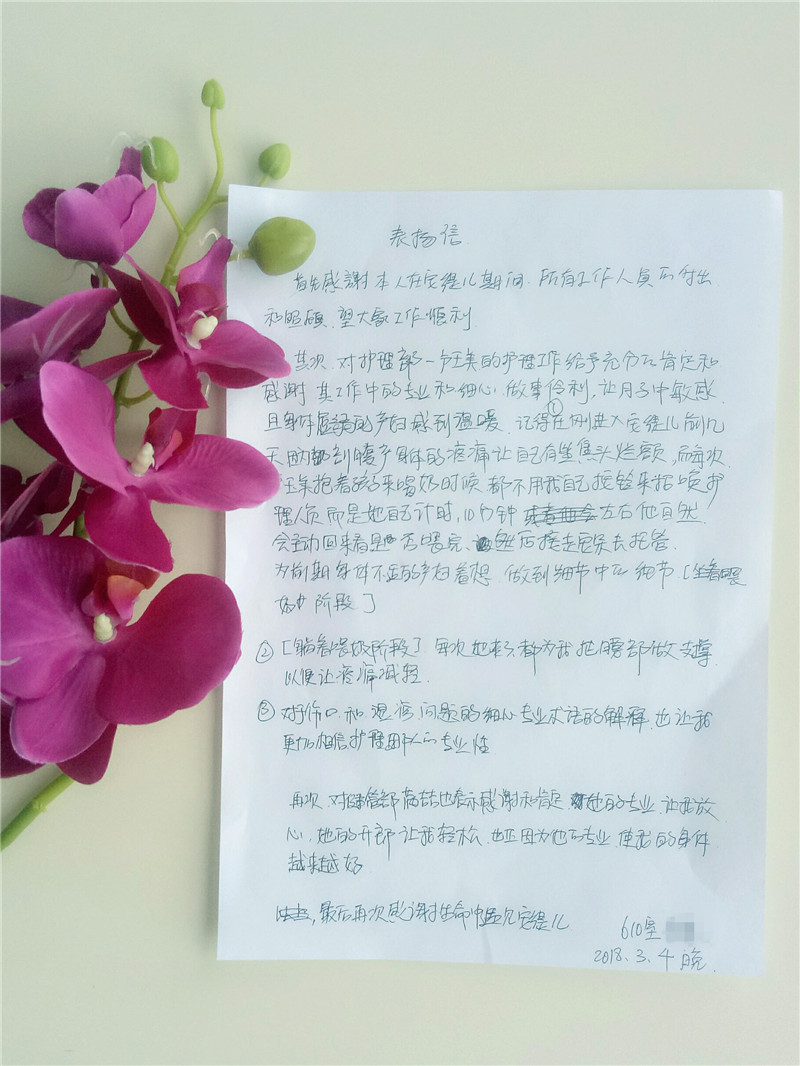 表扬信
首先感谢本人在宝缇儿期间,所有工作人员的付出
和照顾,望大家工作顺利
其次,对护理部 的护理工作给予充分的肯定和
感谢,其工作中的专业和细心,做事伶利,让月子中敏感
且身体 的产妇感到温暖,记得在刚进入宝缇儿前几
天因 到腰 身体的疼痛让自己有些焦头烂额,而每次
抱着孩子来喝奶时候,都不用我自己按铃来招唤护
理人员,而是她自己计时,10分钟 左右她自然
会主动回来看是否喂完,然后接走宝宝去托管.
为前期身体不适的产妇着想,做到细节中的细节.[坐着喂
奶 阶段]
② [躺着喂奶阶段] 每次她来了都为我把腰部做支撑
以便让疼痛减轻.
③ 对伤口和湿疹问题的细心专业术语的解释,也让我
更加相信护理部人的专业性
再次,对 部 也表示感谢和肯定 她的专业,让我放
心,她的开郎让我轻松,也正因为他的专业,使我的身体
越来越好
最后再次感谢生命中遇见宝缇儿
610室
2018.3.4 晚.